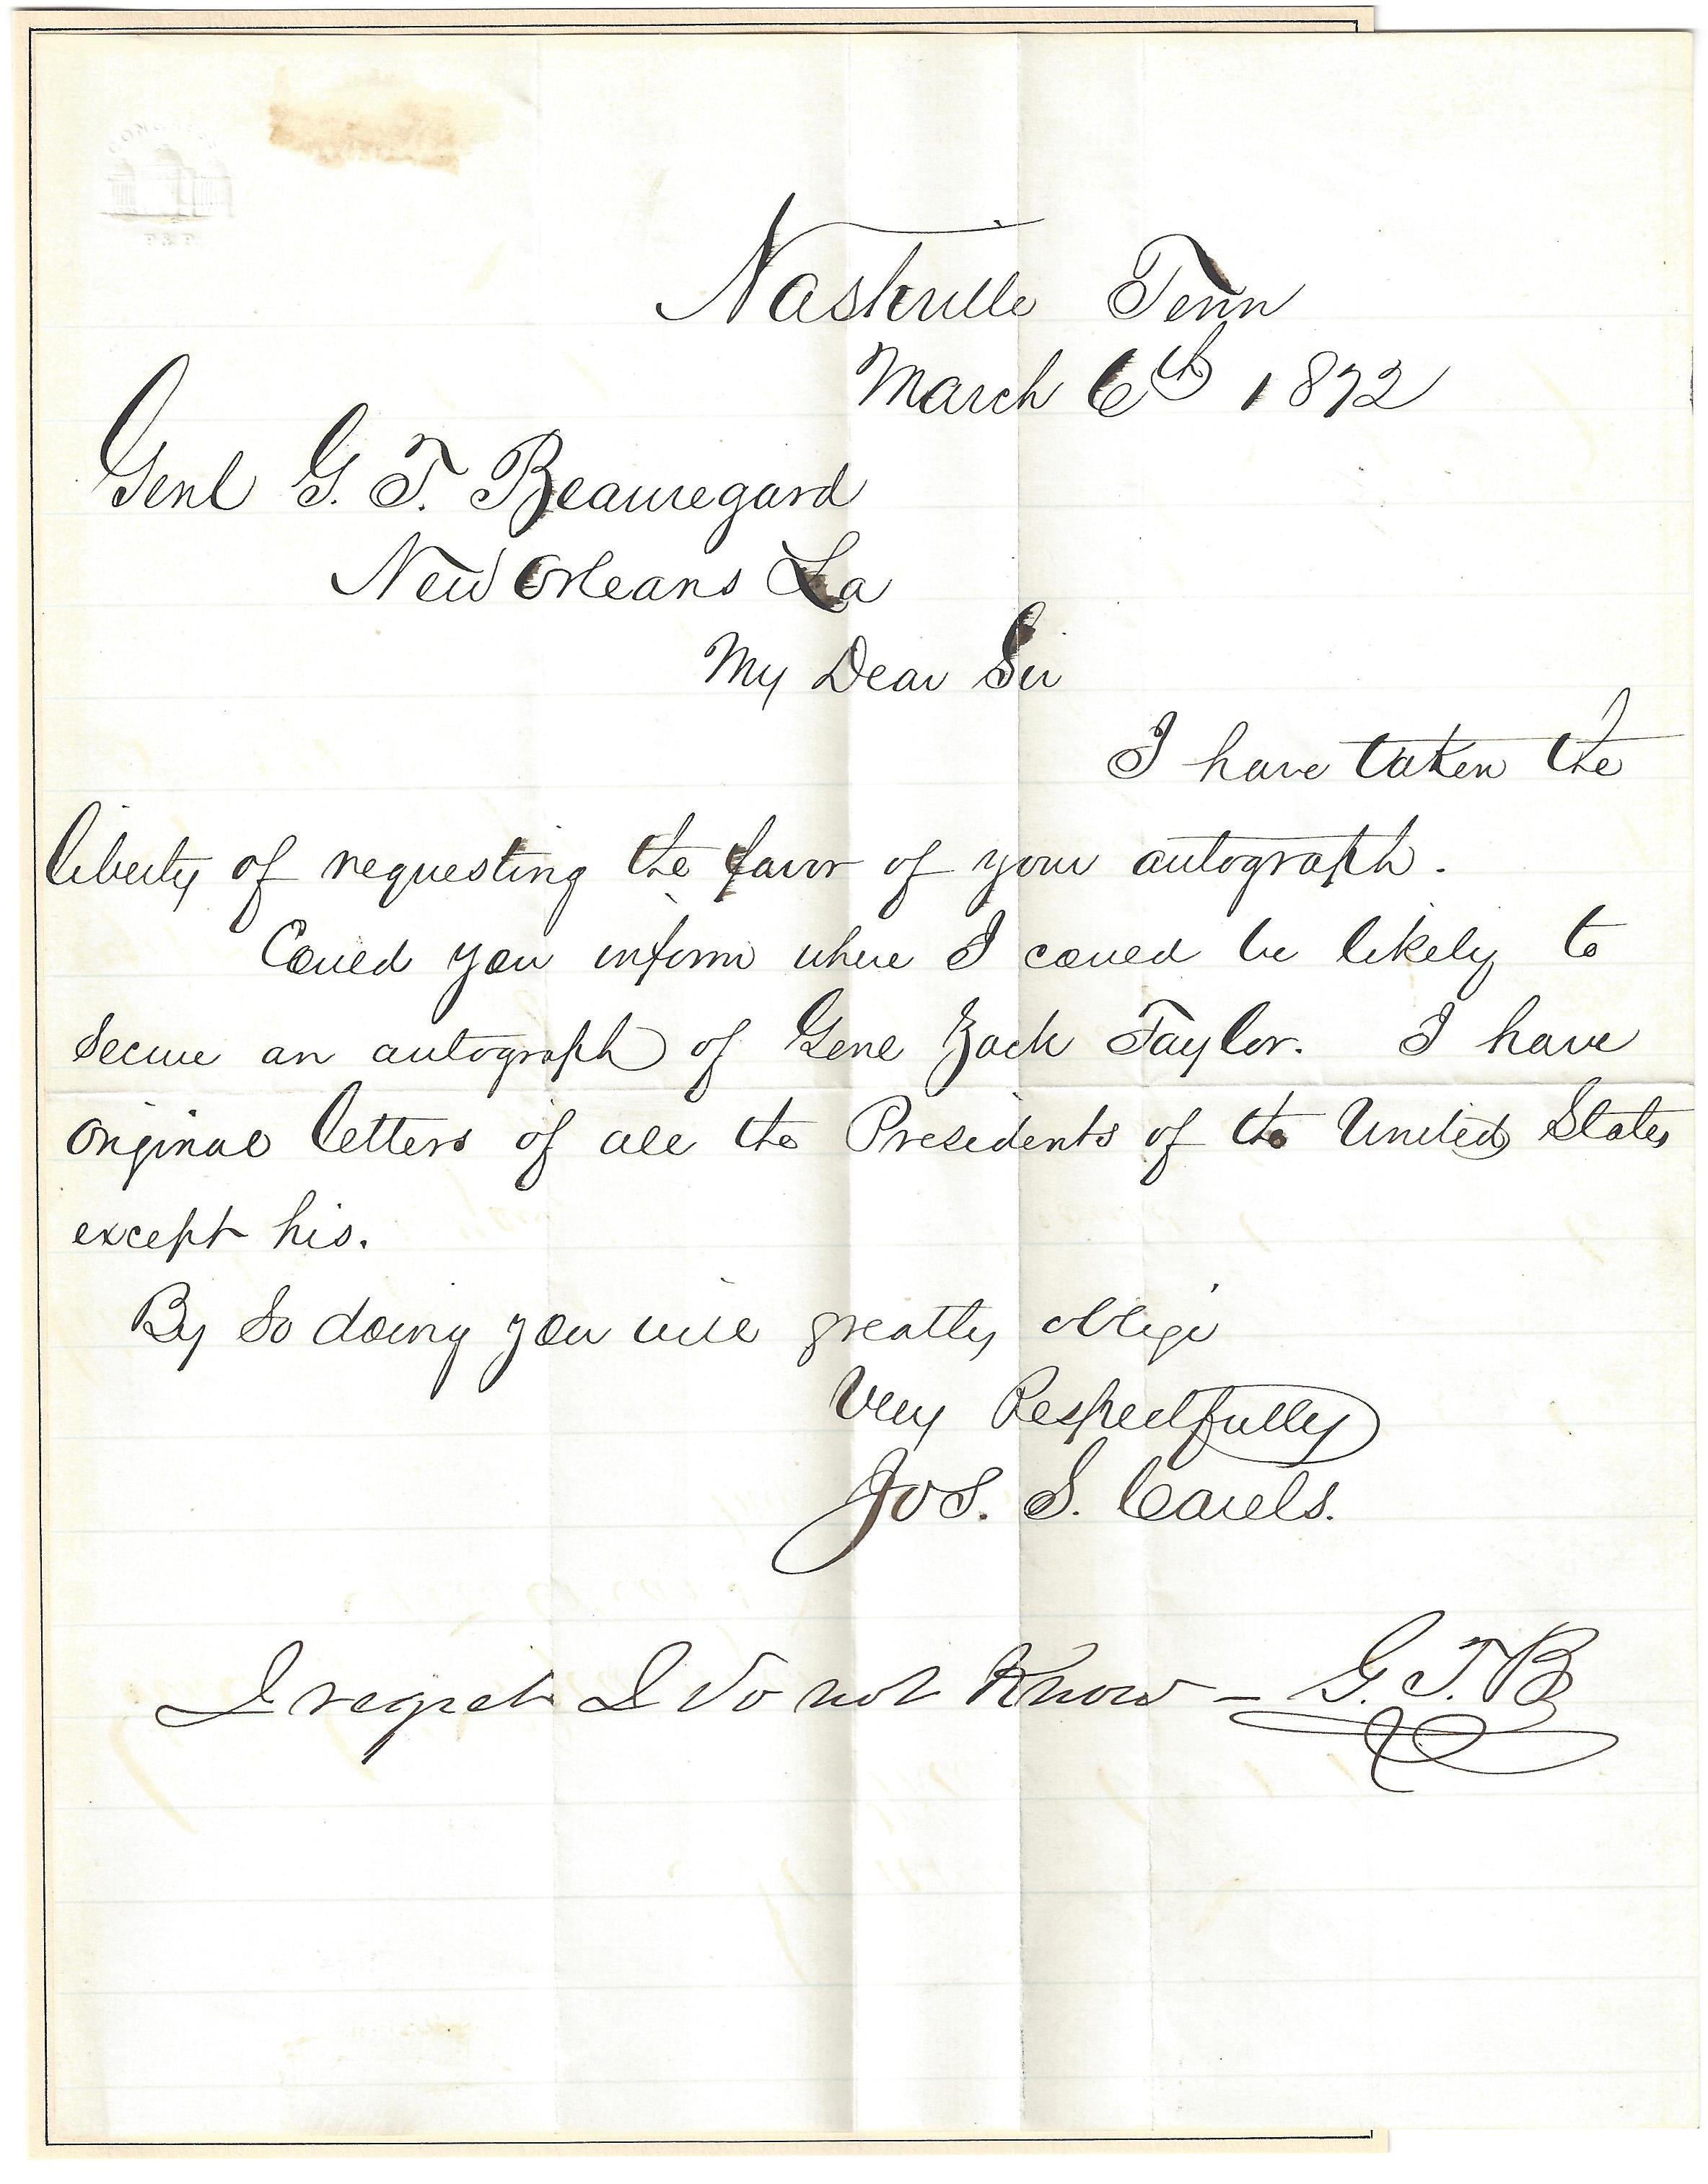 Nashville Tenn
March 6th 1872
Genl G. T. Beauregard
New Orleans La
My Dear Sir
I have taken the
liberty of requesting the favor of your autograph.
Could you inform where I could be likely to
secure an autograph of Genl Zack Taylor. I have
original letters of all the Presidents of the United States
except his.
By so doing you will greatly oblige
Very Respectfully
Jos. S. Carels.
I regret I do not know — G. T. B